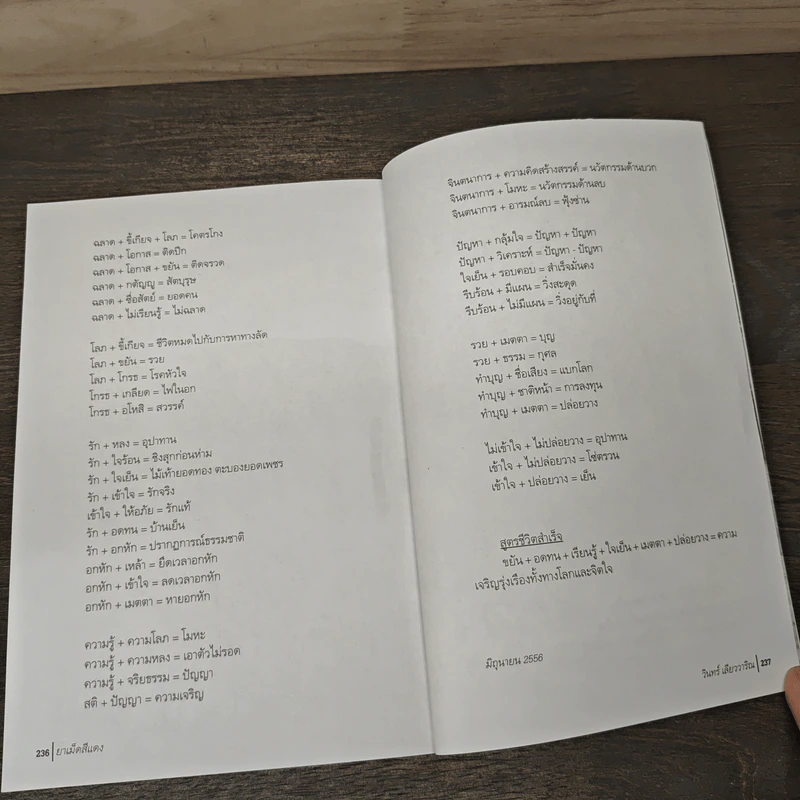 ฉลาด + ขี้เกียจ + โลภ = โคตรโกง
ฉลาด + โอกาส = ติดปีก
ฉลาด + โอกาส + ขยัน = ติดจรวด
ฉลาด + กตัญญู = สัตบุรุษ
ฉลาด + ซื่อสัตย์ = ยอดคน
ฉลาด + ไม่เรียนรู้ = ไม่ฉลาด
โลภ + ขี้เกียจ = ชีวิตหมดไปกับการหาทางลัด
โลภ + ขยัน = รวย
โลภ + โกรธ = โรคหัวใจ
โกรธ + เกลียด = ไฟในอก
โกรธ + อโหสิ = สวรรค์
รัก + หลง = อุปาทาน
รัก + ใจร้อน = ชิงสุกก่อนห่าม
รัก + ใจเย็น = ไม้เท้ายอดทอง ตะบองยอดเพชร
รัก + เข้าใจ = รักจริง
เข้าใจ + ให้อภัย = รักแท้
รัก + อดทน = บ้านเย็น
รัก + อกหัก = ปรากฏการณ์ธรรมชาติ
อกหัก + เหล้า = ยืดเวลาอกหัก
อกหัก + เข้าใจ = ลดเวลาอกหัก
อกหัก + เมตตา = หายอกหัก
ความรู้ + ความโลภ = โมหะ
ความรู้ + ความหลง = เอาตัวไม่รอด
ความรู้ + จริยธรรม = ปัญญา
สติ + ปัญญา = ความเจริญ
236 | ยาเม็ดสีแดง
จินตนาการ + ความคิดสร้างสรรค์ = นวัตกรรมด้านบวก
จินตนาการ + โมหะ = นวัตกรรมด้านลบ
จินตนาการ + อารมณ์ลบ = ฟุ้งซ่าน
ปัญหา + กลุ้มใจ = ปัญหา + ปัญหา
ปัญหา + วิเคราะห์ = ปัญหา - ปัญหา
ใจเย็น + รอบคอบ = สำเร็จมั่นคง
รีบร้อน + มีแผน = วิ่งสะดุด
รีบร้อน + ไม่มีแผน = วิ่งอยู่กับที่
รวย + เมตตา = บุญ
รวย + ธรรม = กุศล
ทำบุญ + ชื่อเสียง = แบกโลก
ทำบุญ + ชาติหน้า = การลงทุน
ทำบุญ + เมตตา = ปล่อยวาง
ไม่เข้าใจ + ไม่ปล่อยวาง = อุปาทาน
เข้าใจ + ไม่ปล่อยวาง = โซ่ตรวน
เข้าใจ + ปล่อยวาง = เย็น
สูตรชีวิตสำเร็จ
ขยัน + อดทน + เรียนรู้ + ใจเย็น + เมตตา + ปล่อยวาง = ความ
เจริญรุ่งเรืองทั้งทางโลกและจิตใจ
มิถุนายน 2556
วินทร์ เลียววาริณ | 237